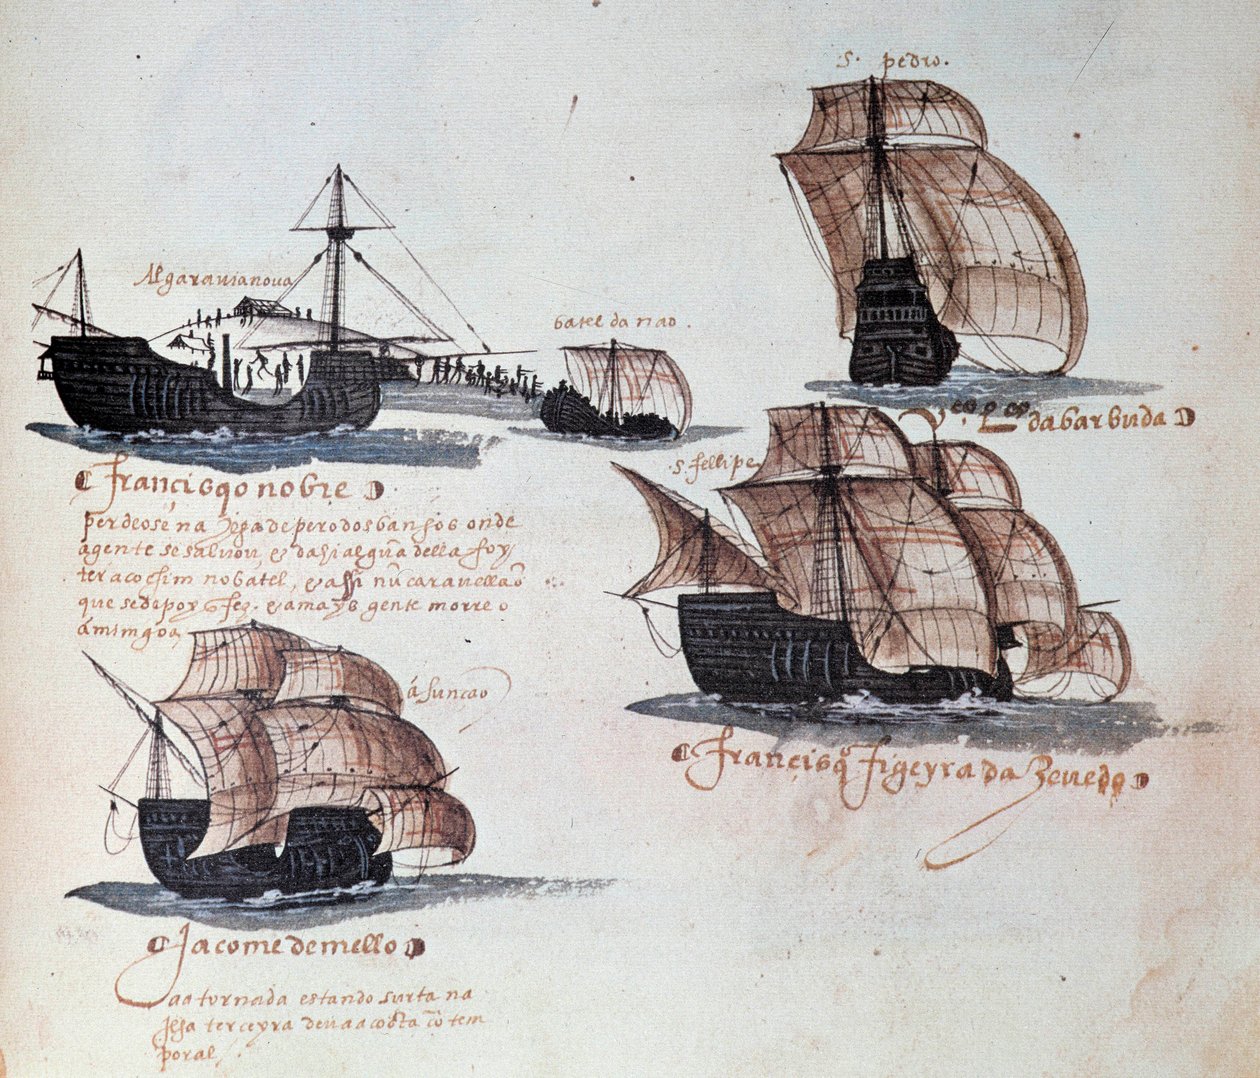 s. pedro.
Algaravia nova
batel da nao.
Vco lopes da barbuda
s. fellipe
françisqo nobre
perdeose na Jlha de pero dos banhos onde
a gente se salvou, e dahi algũa della foy
ter a cochim no batel, e assi nũ caravellaõ
que se depoys fez. e a mays gente morreo
á mingoa
á suncao
françisqo figeyra dazevedo
Jacome de mello
aa tornada estando surta na
Jlha terceyra deu aa costa cõ tem
poral,